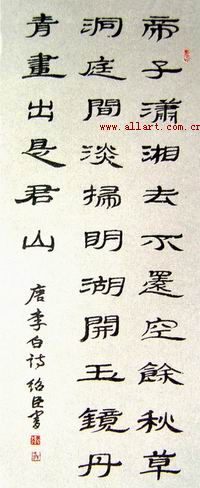 帝子瀟湘去不還空餘秋草
洞庭間淡掃明湖開玉鏡丹
青畫出是君山
唐李白詩紹臣書
www.allart.com.cn